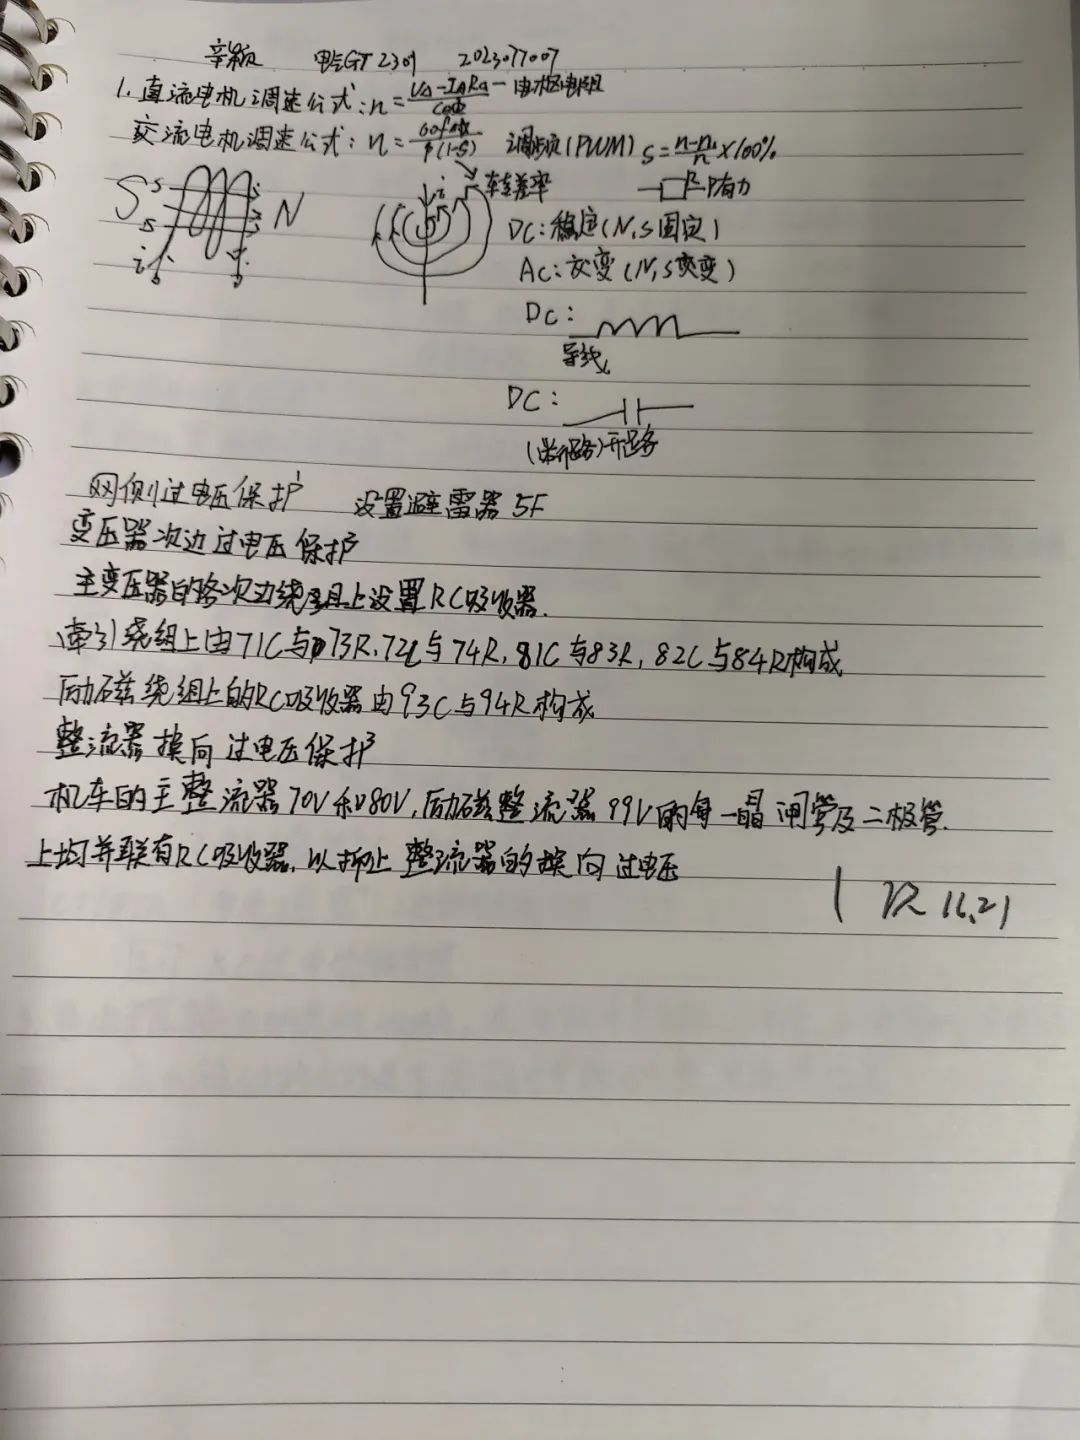 辛颖 电气GT2301 2023077007
1.直流电机调速公式:n=(Ua-IaRa)/CeΦ 电枢电阻
交流电机调速公式:n=60f/p(1-s) 调频(PWM) S=n-n₁/n×100%
转差率 R P有力
S s s i i N i DC:稳定(N,S固定)
AC:交变(N,S交变)
DC:
导线
DC:
(断路)开路
网侧过电压保护 设置避雷器5F
变压器次边过电压保护
主变压器的各次边绕组上设置RC吸收器.
牵引绕组上由71C与73R,72C与74R,81C与83R,82C与84R构成
励磁绕组上的RC吸收器由93C与94R构成
整流器换向过电压保护
机车的主整流器70V和80V,励磁整流器99V的每一晶闸管及二极管
上均并联有RC吸收器,以抑止整流器的换向过电压